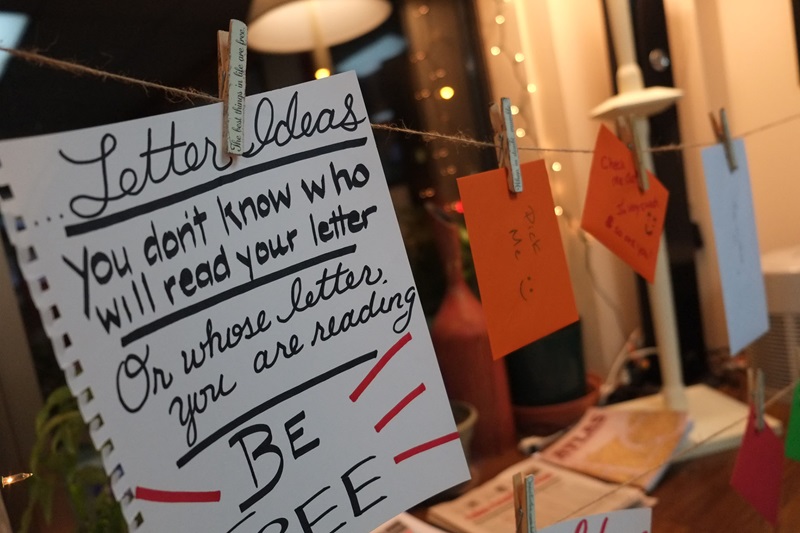 The best things in life are free.
Letter Ideas
...
You don't know who
will read your letter
Or whose letter
you are reading
BE
FREE
PICK
ME
:)
ATLAS